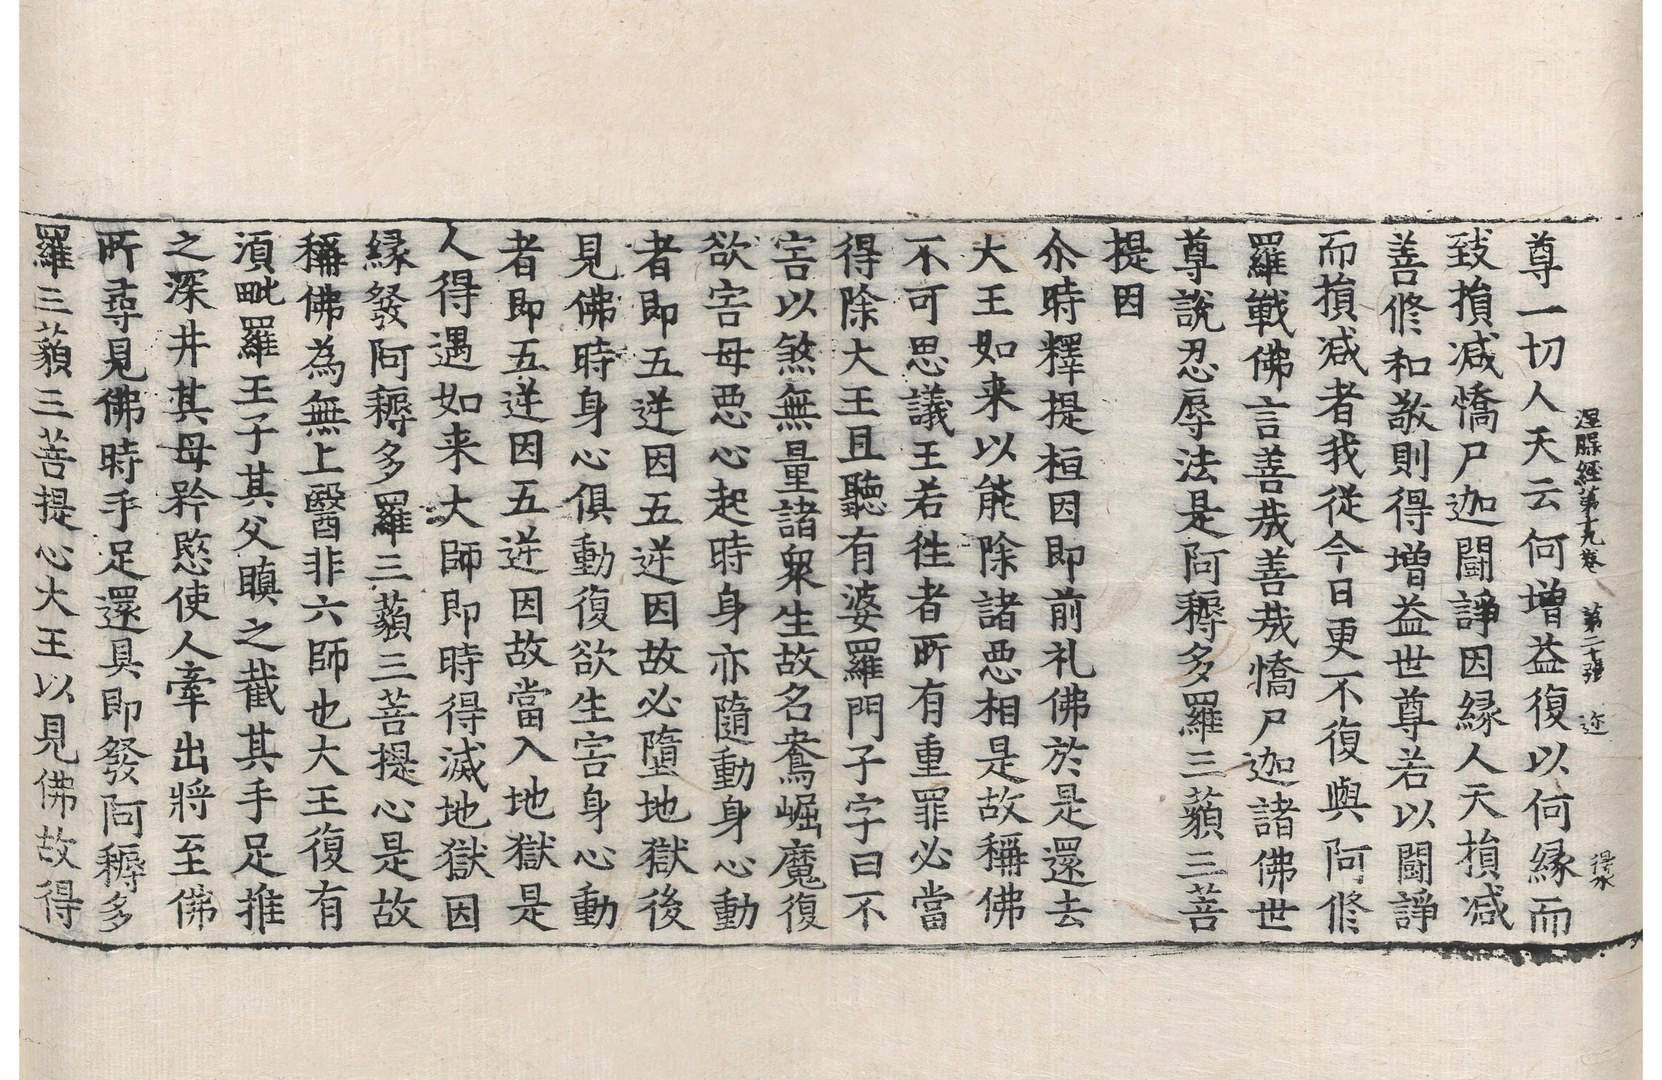 涅槃經第十九卷 第二十張 迩 得水
尊一切人天云何增益復以何縁而
致損减憍尸迦闘諍因縁人天損减
善修和敬則得增益世尊若以闘諍
而損减者我従今日更不復與阿修
羅戰佛言善哉善哉憍尸迦諸佛世
尊說忍辱法是阿耨多羅三藐三菩
提因
尒時釋提桓因即前礼佛於是還去
大王如来以能除諸惡相是故稱佛
不可思議王若徃者所有重罪必當
得除大王且聽有婆羅門子字曰不
害以煞無量諸衆生故名鴦崛魔復
欲害母惡心起時身亦隨動身心動
者即五逆因五逆因故必墮地獄後
見佛時身心俱動復欲生害身心動
者即五逆因五逆因故當入地獄是
人得遇如来大師即時得滅地獄因
縁發阿耨多羅三藐三菩提心是故
稱佛為無上醫非六師也大王復有
湏毗羅王子其父瞋之截其手足推
之深井其母矜愍使人牽出將至佛
所尋見佛時手足還具即發阿耨多
羅三藐三菩提心大王以見佛故得